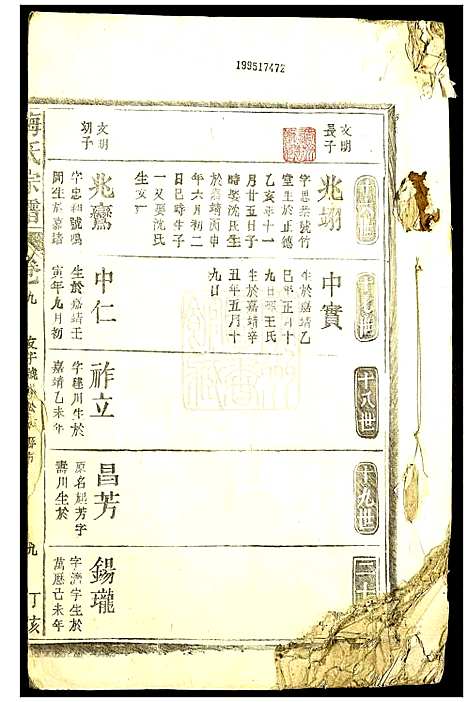 199517472
十六世
十七世
十八世
十九世
二十
文明
長子
兆翊
字思榮號竹
堂生於正德
乙亥年十一
月廿五日子
時娶沈氏生
於嘉靖丙申
年六月初二
日巳時生子
一又娶沈氏
生女一
中實
生於嘉靖乙
巳年正月十
九日娶王氏
生於嘉靖辛
丑年五月十
九日
文明
幼子
兆鸞
字忠和號鳴
岡生於嘉靖
中仁
生於嘉靖壬
寅年九月初
祚立
字建川生於
嘉靖乙未年
昌芳
原名起芳字
壽川生於
錫瓏
字濟宇生於
萬曆己未年
梅氏宗譜
卷九
九
丁亥